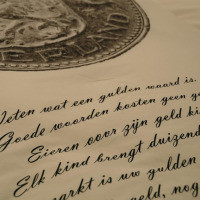 Weten wat een gulden waard is.
Goede woorden kosten geen g
Eieren voor zijn geld ki
Elk kind brengt duizend
markt is uw gulden
geld, nog